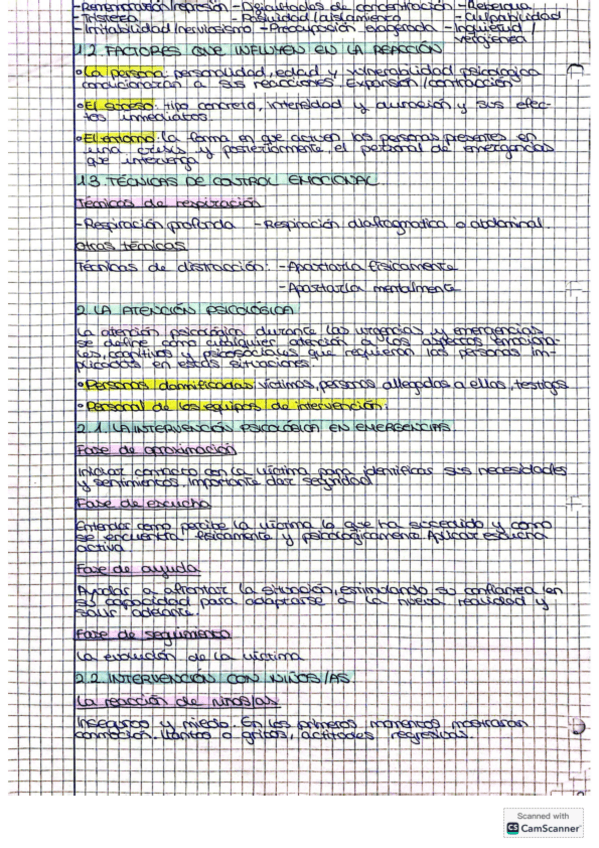 -Rememoración/represión -Dificultades de concentración -Rebeldía
-Tristeza -Pasividad/aislamiento -Culpabilidad
-Irritabilidad/nerviosismo -Preocupación exagerada -Inquietud/
vergüenza
1.2. FACTORES QUE INFLUYEN EN LA REACCIÓN
•La persona: personalidad, edad y vulnerabilidad psicológica
condicionarán a sus reacciones. Expansión/contracción
•El suceso: tipo concreto, intensidad y duración y sus efec-
tos inmediatos
•El entorno: la forma en que actúen las personas presentes en
una crisis y posteriormente, el personal de emergencias
que intervenga
1.3. TÉCNICAS DE CONTROL EMOCIONAL
Técnicas de respiración
-Respiración profunda -Respiración diafragmatica o abdominal.
Otras técnicas
Técnicas de distracción: -Apartarla físicamente
-Apartarla mentalmente
2. LA ATENCIÓN PSICOLÓGICA
La atención psicológica durante las urgencias y emergencias
se define como cualquier atención a los aspectos emociona-
les, cognitivos y psicosociales que requieren las personas im-
plicadas en estas situaciones.
•Personas damnificadas: víctimas, personas allegadas a ellas, testigos
•Personal de los equipos de intervención.
2.1. LA INTERVENCIÓN PSICOLÓGICA EN EMERGENCIAS
Fase de aproximación
Iniciar contacto con la víctima para identificar sus necesidades
y sentimientos. Importante dar seguridad
Fase de escucha
Entender como percibe la víctima lo que ha sucedido y como
se encuentra físicamente y psicológicamente. Aplicar escucha
activa.
Fase de ayuda
Ayudar a afrontar la situación, estimulando su confianza en
su capacidad para adaptarse a la nueva realidad y
salir adelante.
Fase de seguimiento
La evolución de la víctima
2.2. INTERVENCIÓN CON NIÑOS/AS
La reacción de niños/as
Inseguros y miedo. En los primeros momentos mostrarán
conmoción, llantos o gritos, actitudes regresivas.
Scanned with
CS CamScanner